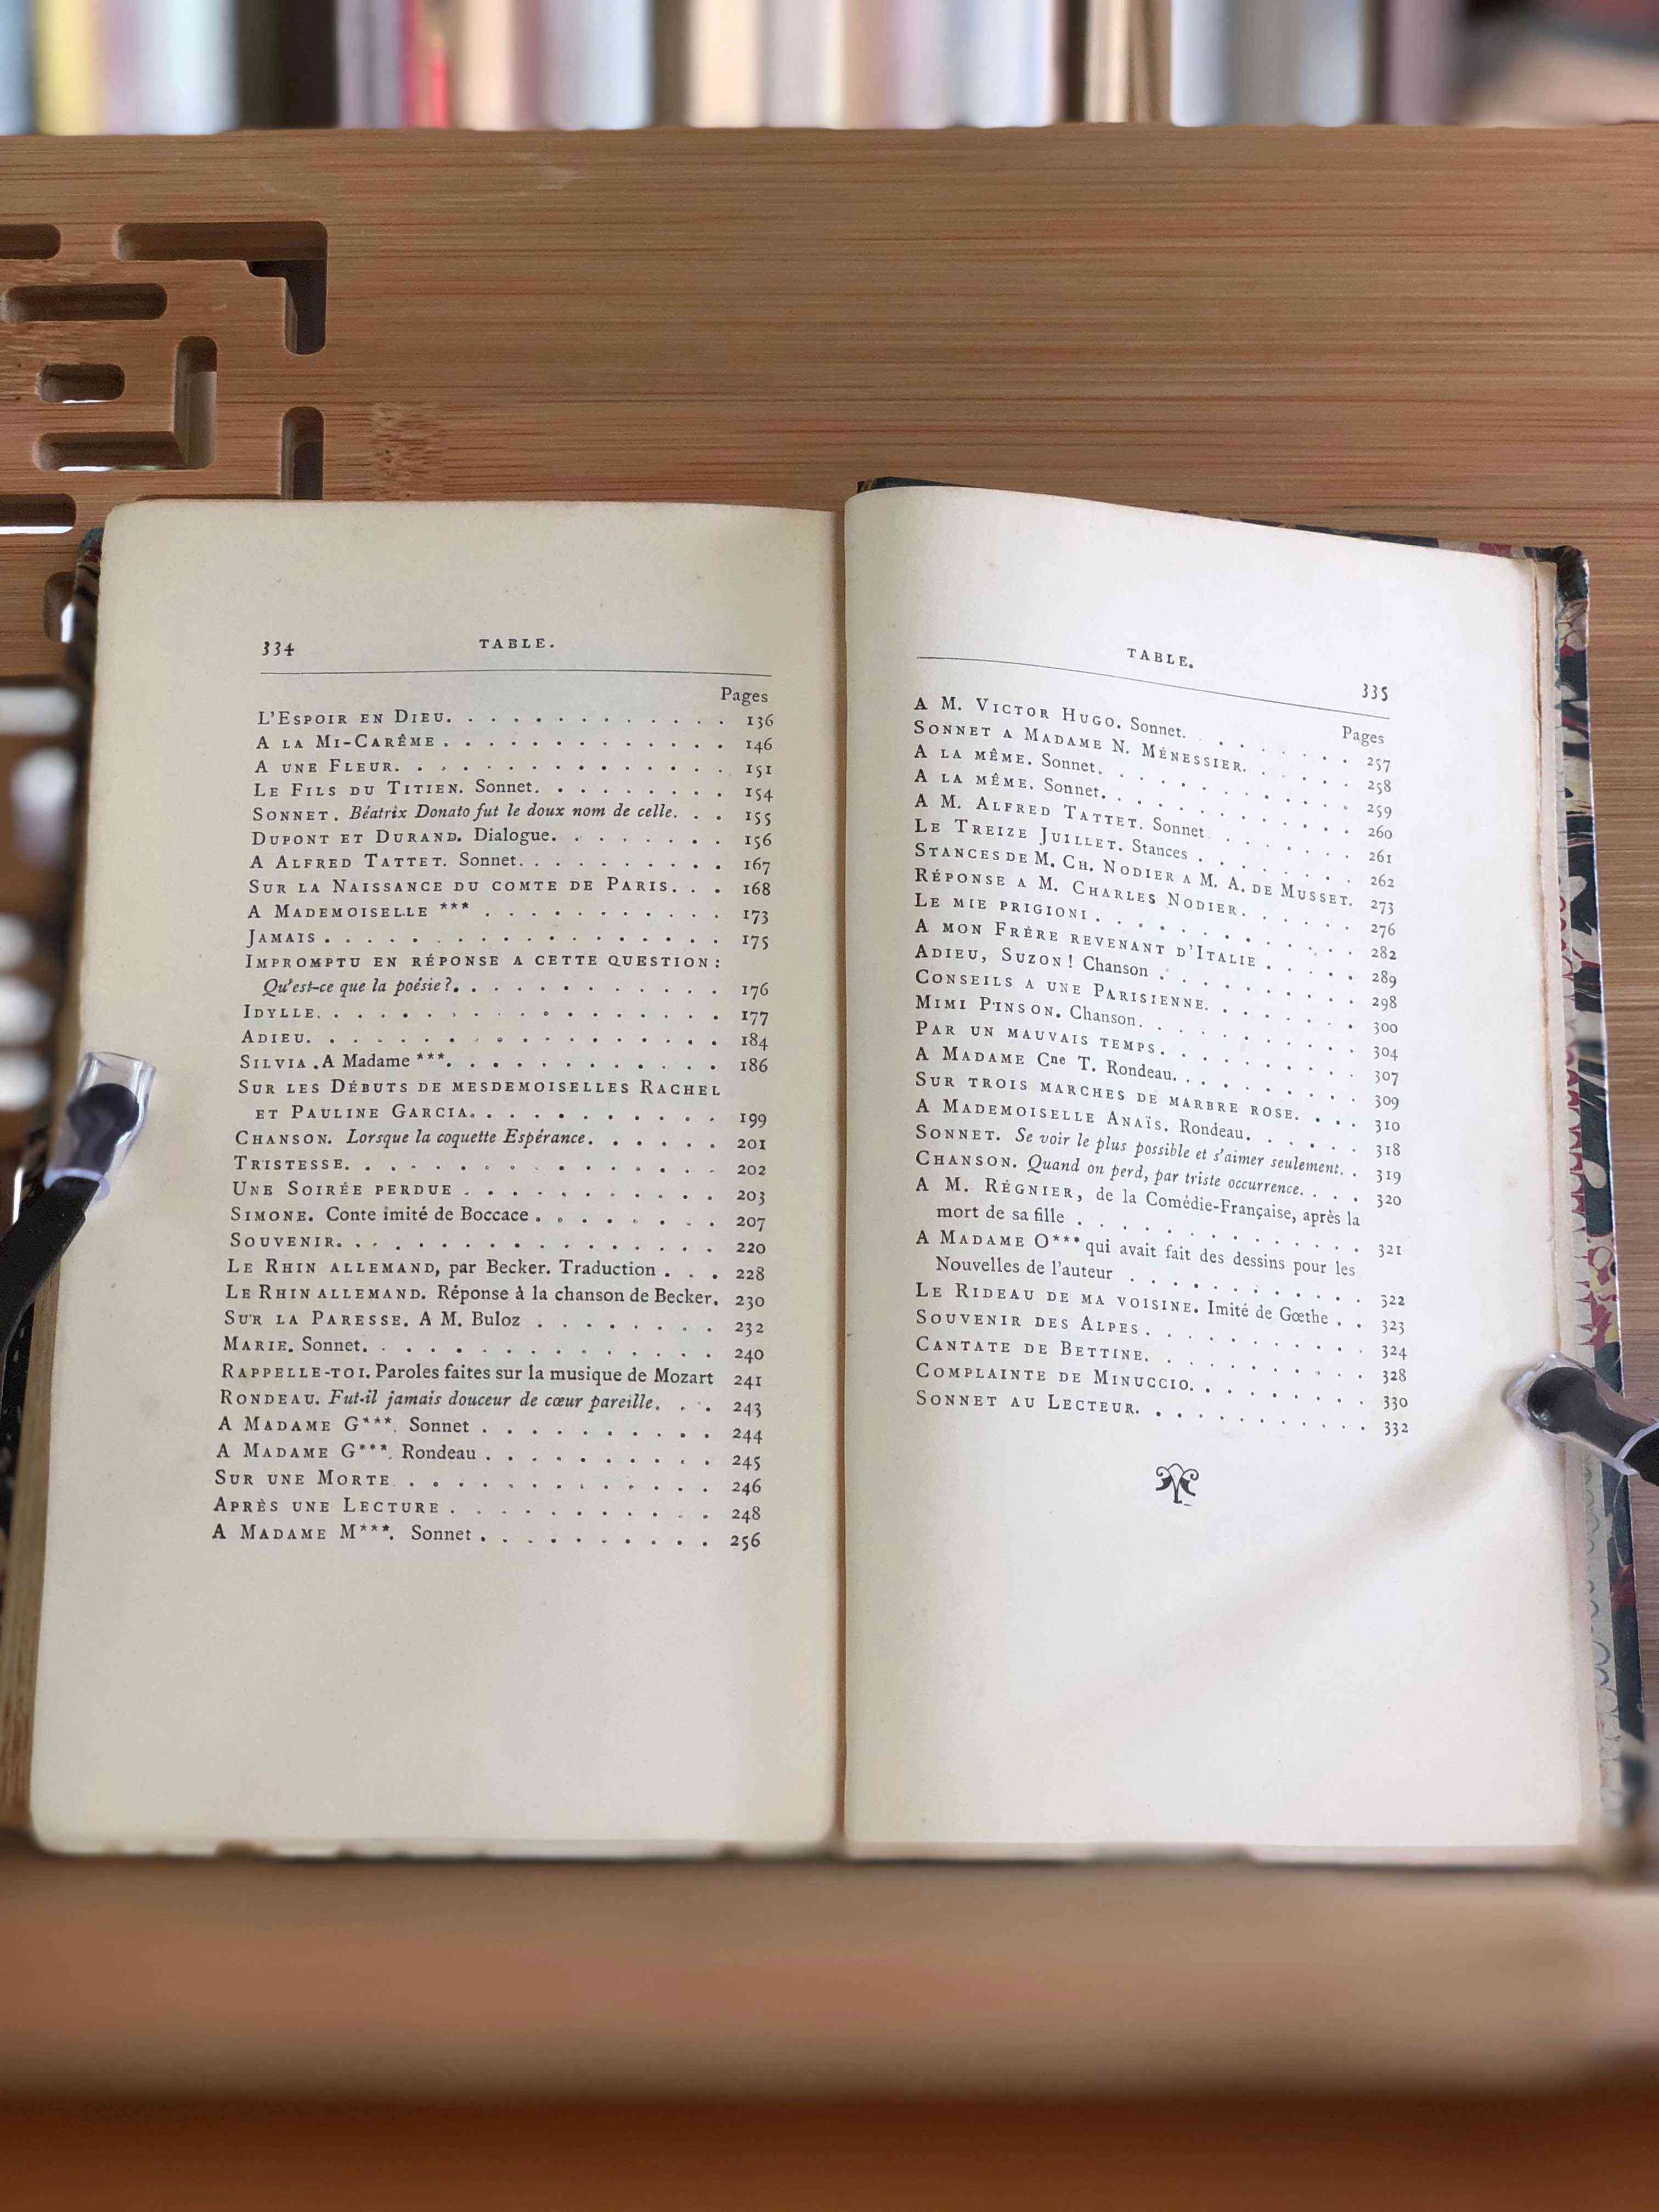 334 TABLE.
Pages
L'ESPOIR EN DIEU. . . . . . . . . . . . . 136
A LA MI-CARÊME . . . . . . . . . . . . . 146
A UNE FLEUR. . . . . . . . . . . . . . . 151
LE FILS DU TITIEN. Sonnet. . . . . . . . . 154
SONNET. Béatrix Donato fut le doux nom de celle. . . 155
DUPONT ET DURAND. Dialogue. . . . . . . . 156
A ALFRED TATTET. Sonnet. . . . . . . . . 167
SUR LA NAISSANCE DU COMTE DE PARIS. . . 168
A MADEMOISELLE *** . . . . . . . . . . . 173
JAMAIS . . . . . . . . . . . . . . . . . 175
IMPROMPTU EN RÉPONSE A CETTE QUESTION :
Qu'est-ce que la poésie?. . . . . . . . . . . 176
IDYLLE. . . . . . . . . . . . . . . . . 177
ADIEU. . . . . . . . . . . . . . . . . 184
SILVIA. A Madame ***. . . . . . . . . . . . 186
SUR LES DÉBUTS DE MESDEMOISELLES RACHEL
ET PAULINE GARCIA. . . . . . . . . . . 199
CHANSON. Lorsque la coquette Espérance. . . . . . 201
TRISTESSE. . . . . . . . . . . . . . . . 202
UNE SOIRÉE PERDUE . . . . . . . . . . . 203
SIMONE. Conte imité de Boccace . . . . . . . . 207
SOUVENIR. . . . . . . . . . . . . . . . 220
LE RHIN ALLEMAND, par Becker. Traduction . . . 228
LE RHIN ALLEMAND. Réponse à la chanson de Becker. 230
SUR LA PARESSE. A M. Buloz . . . . . . . . 232
MARIE. Sonnet. . . . . . . . . . . . . . . 240
RAPPELLE-TOI. Paroles faites sur la musique de Mozart 241
RONDEAU. Fut-il jamais douceur de cœur pareille. . . . 243
A MADAME G***. Sonnet . . . . . . . . . . 244
A MADAME G***. Rondeau . . . . . . . . . . 245
SUR UNE MORTE . . . . . . . . . . . . . 246
APRÈS UNE LECTURE . . . . . . . . . . . 248
A MADAME M***. Sonnet . . . . . . . . . . 256
TABLE. 335
Pages
A M. VICTOR HUGO. Sonnet. . . . . . . . . 257
SONNET A MADAME N. MÉNESSIER. . . . . . 258
A LA MÊME. Sonnet. . . . . . . . . . . . . 259
A LA MÊME. Sonnet. . . . . . . . . . . . . 260
A M. ALFRED TATTET. Sonnet . . . . . . . . 261
LE TREIZE JUILLET. Stances . . . . . . . . 262
STANCES DE M. CH. NODIER A M. A. DE MUSSET. 273
RÉPONSE A M. CHARLES NODIER. . . . . . 276
LE MIE PRIGIONI . . . . . . . . . . . . . 282
A MON FRÈRE REVENANT D'ITALIE . . . . . 289
ADIEU, SUZON ! Chanson . . . . . . . . . . 298
CONSEILS A UNE PARISIENNE. . . . . . . . 300
MIMI PINSON. Chanson. . . . . . . . . . . 304
PAR UN MAUVAIS TEMPS. . . . . . . . . . 307
A MADAME Cne T. Rondeau. . . . . . . . . . 309
SUR TROIS MARCHES DE MARBRE ROSE. . . . 310
A MADEMOISELLE ANAÏS. Rondeau. . . . . . 318
SONNET. Se voir le plus possible et s'aimer seulement. . 319
CHANSON. Quand on perd, par triste occurrence. . . . 320
A M. RÉGNIER, de la Comédie-Française, après la
mort de sa fille . . . . . . . . . . . . . 321
A MADAME O*** qui avait fait des dessins pour les
Nouvelles de l'auteur . . . . . . . . . . . 322
LE RIDEAU DE MA VOISINE. Imité de Gœthe . . 323
SOUVENIR DES ALPES . . . . . . . . . . . 324
CANTATE DE BETTINE. . . . . . . . . . . 328
COMPLAINTE DE MINUCCIO. . . . . . . . . 330
SONNET AU LECTEUR. . . . . . . . . . . . 332